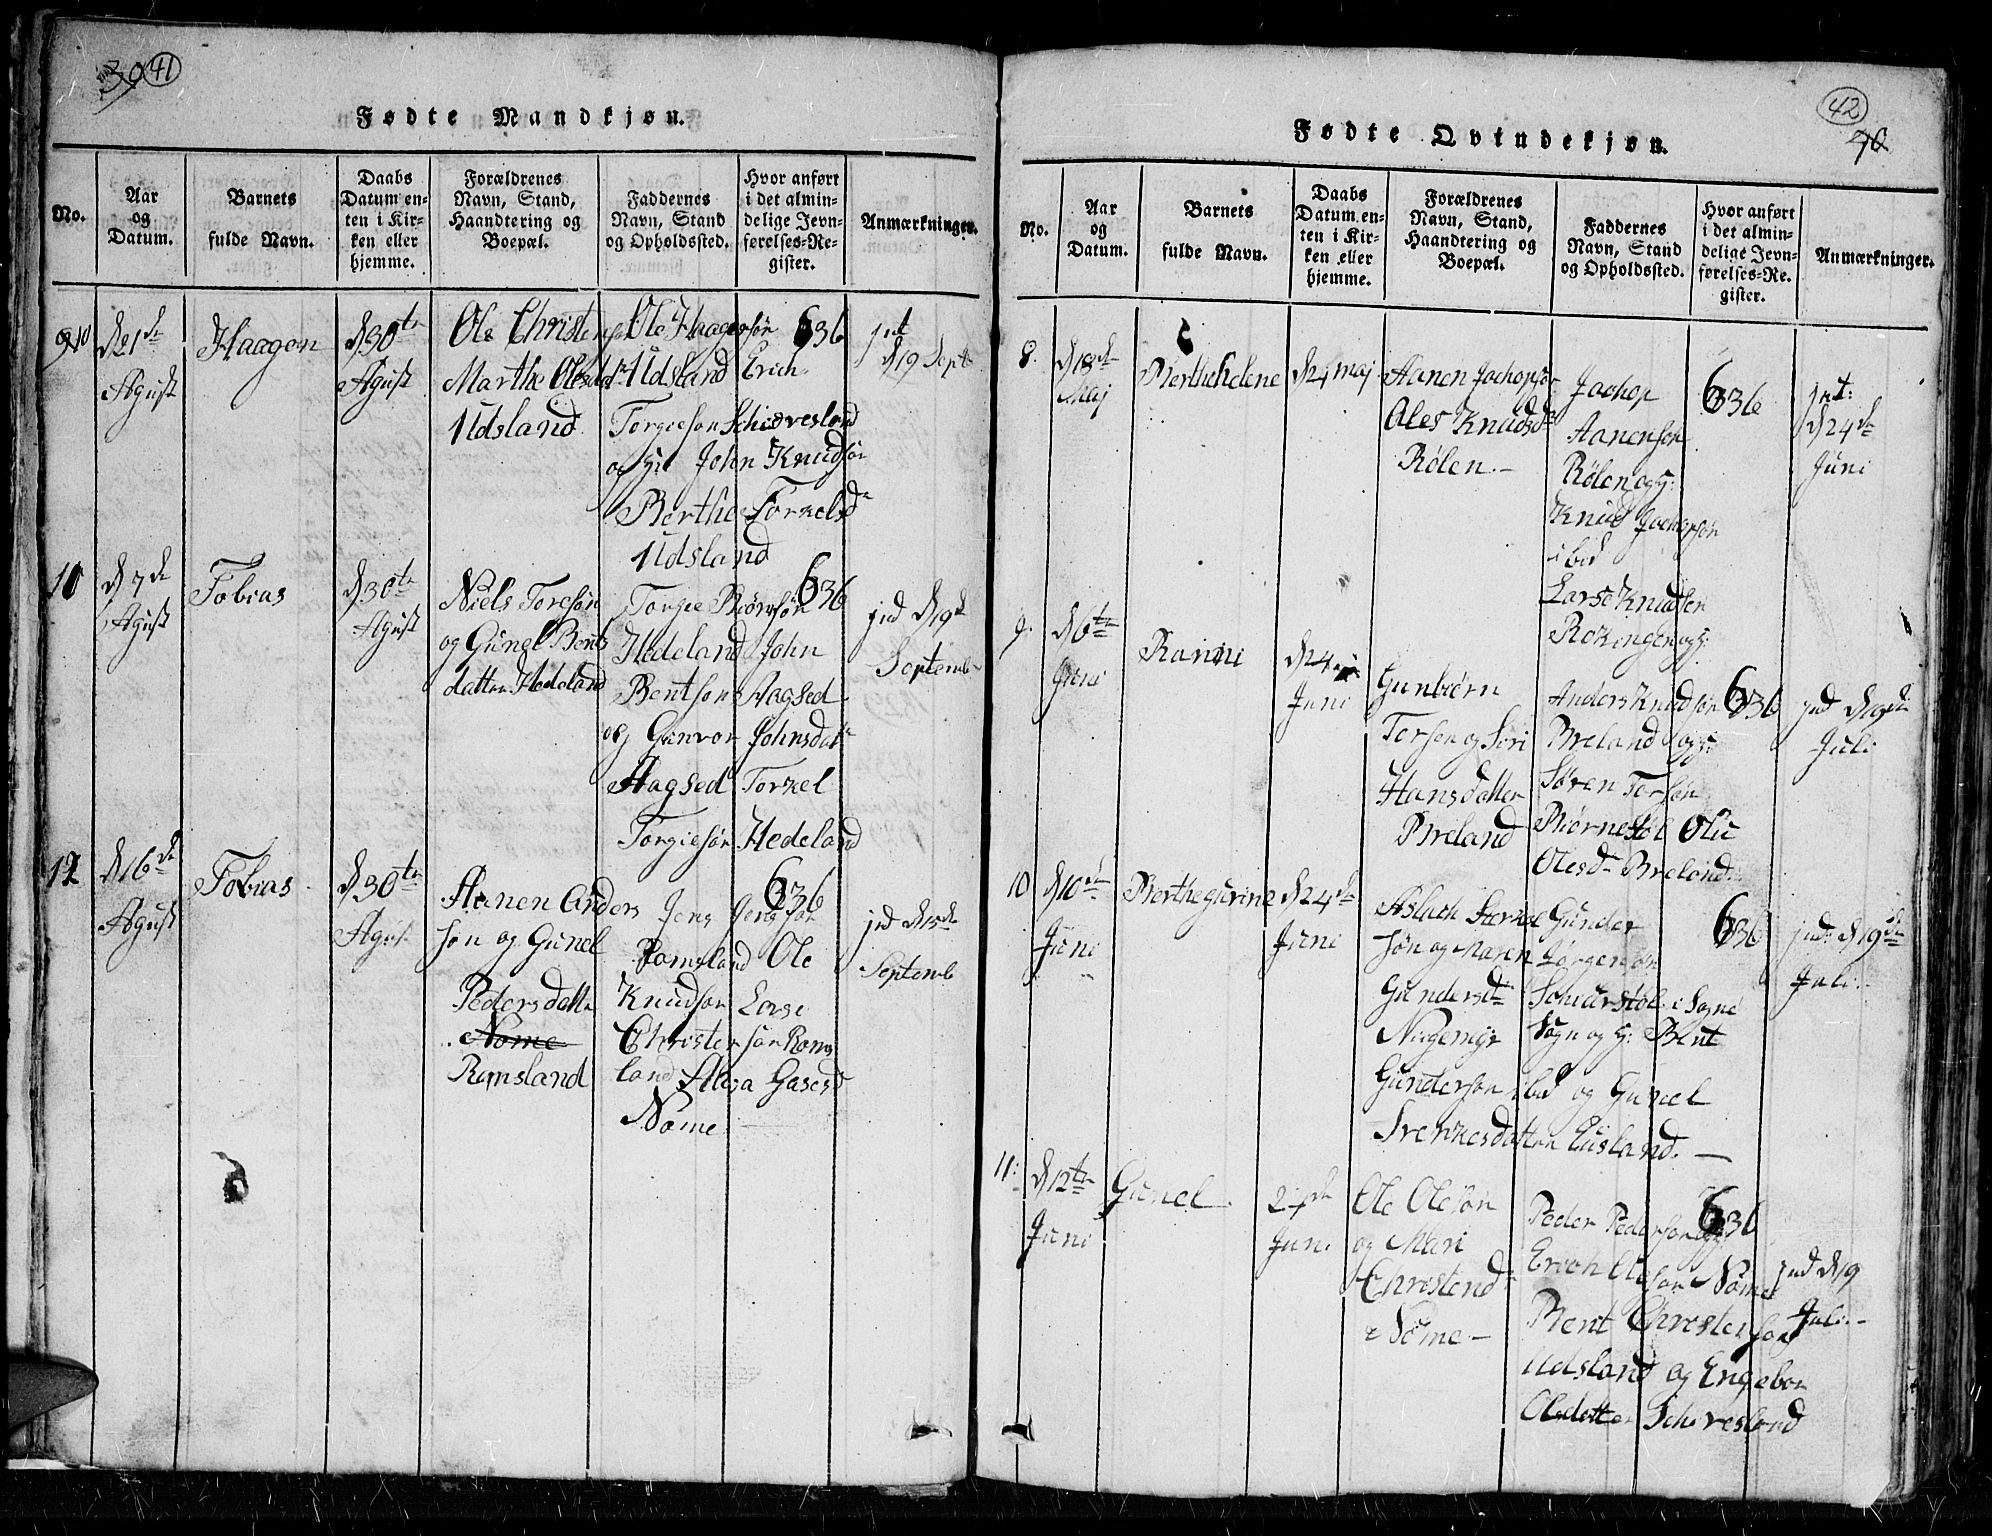 39 41
Fødte Mandkjøn.
No.
Aar
og
Datum.
Barnets
fulde Navn.
Daabs
Datum en-
ten i Kir-
ken eller
hjemme.
Forældrenes
Navn, Stand,
Haandtering og
Boepæl.
Faddernes
Navn, Stand
og Opholdssted.
Hvor anført
i det almin-
delige Jevn-
førelses-Re-
gister.
Anmærkninger.
10
d 21de
Agust
Haagen
d 30te
Agust
Ole Christensøn
Marthe Olesdatr
Udsland
Ole Haagensøn
Udsland Erich
Torgiesøn Schieveslond
og John Knudsøn
Berthe Torkelsdr
Udsland
636
jnt
d 19 Sept
10
d 7de
Agust
Tobias
d 30te
Agust
Niels Toresøn
og Gunel Bents
datter Hedeland
Torgie Biørnsøn
Hedeland John
Bentson Aagsed
og Gunvor Johnsdatr
Aagsed Torkel
Torgiesøn Hedeland
636
jnd d 19de
Septemb
12
d 16de
Agust
Tobias
d 30te
Agust
Aanen Anders
søn og Gunel
Pedersdatter
Nome
Romsland
Jens Jensøn
Romsland Ole
Knudsøn Lorse
Christensøn Roms
land Alisa Gasesdr
Nome
636
jnd d 15de
Septemb
42
40
Fødte Qvindekjøn.
No.
Aar
og
Datum.
Barnets
fulde Navn.
Daabs
Datum en-
ten i Kir-
ken eller
hjemme.
Forældrenes
Navn, Stand,
Haandtering og
Boepæl.
Faddernes
Navn, Stand
og Opholdssted.
Hvor anført
i det almin-
delige Jevn-
førelses-Re-
gister.
Anmærkninger.
8.
d 18de
Maj
Bertehelene
d 24 maj
Aanen Jachopsøn
Ales Knudsdr
Rølen.
Jachop
Aanensøn
Rølen og
Knud Jachopsøn
ibid
Larse Knudsen
Rokingen og
636
jnt:
d 24de
Juni
9.
d 6te
Juni
Ranni
d 24
Juni
Gunbiørn
Torsen og Siri
Hansdatter
Breland
Anders Knudsøn
Breland og
Søren Torsøn
Biørnestøl Olu
Olesdr Breland.
636
jnd d 19de
Juli
10
d 10de
Juni
Berthegurine
d 24de
Juni
Aslach Sterke
søn og Maren
Gundersdr
Gunder
Jørgensøn
i Sogne
Sogn og Bent
Gundersøn ibid og Gunel
Sterkesdatter Eusland.
636
jnd: d 19de
Juli.
11:
d 12te
Juni
Gunel
24de
Juni
Ole Olesøn
og Mari
Christendr
Nome
Peder Pedersøn og
Erich Olesøn Nome
Bent Christensøn
Udsland og Engebor
Olsdatter Schieveslond
636
jnd d 19
Juli.